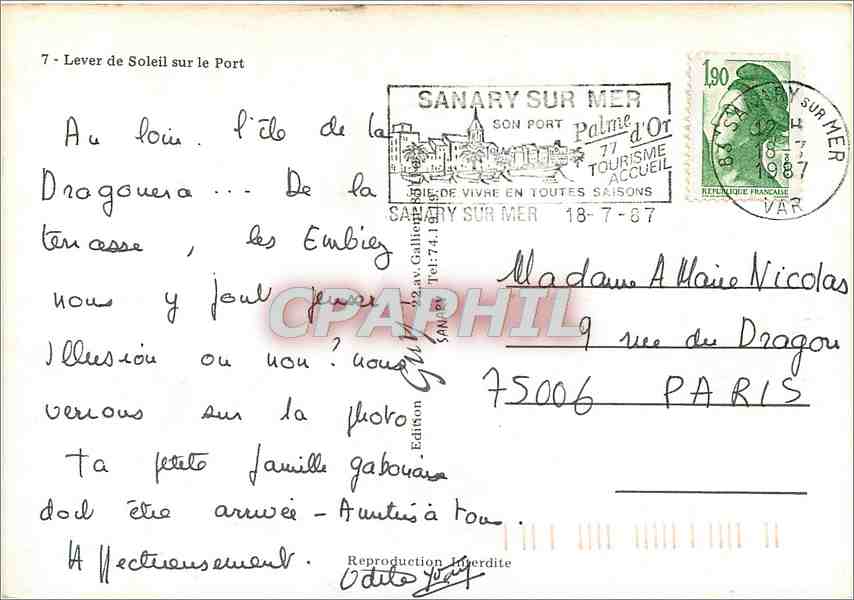 7 - Lever de Soleil sur le Port
Au loin. l'île de la
Dragonera ... De la
terrasse, les Embiez
nous y font penser -
Illusion ou non ? nous
verrons sur la photo
Ta petite famille gabonaise
doit être arrivée - Amitiés à tous.
Affectueusement.
Odile
SANARY SUR MER
SON PORT
Palme d'Or
77
TOURISME
ACCUEIL
JOIE DE VIVRE EN TOUTES SAISONS
SANARY SUR MER 18-7-87
1,90
REPUBLIQUE FRANÇAISE
83 SANARY SUR MER
12 H
18-7
1987
VAR
Edition Guy
22, av. Gallieni
SANARY Tel: 74.1
CPAPHIL
Madame A Marie Nicolas
9 rue du Dragon
75006 PARIS
Reproduction Interdite